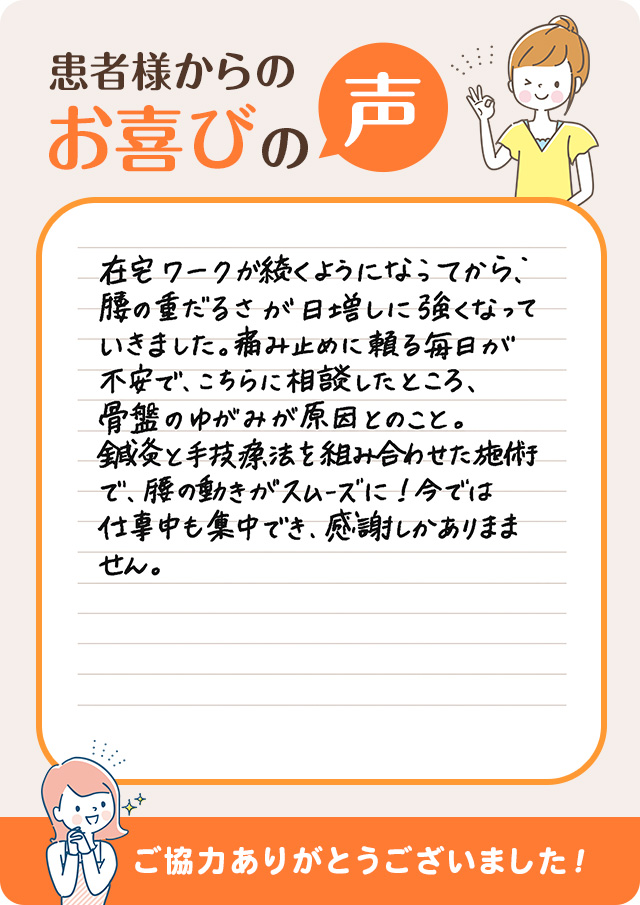 患者様からの
お喜びの声
在宅ワークが続くようになってから、
腰の重だるさが日増しに強くなって
いきました。痛み止めに頼る毎日が
不安で、こちらに相談したところ、
骨盤のゆがみが原因とのこと。
鍼灸と手技療法を組み合わせた施術
で、腰の動きがスムーズに！今では
仕事中も集中でき、感謝しかありまま
せん。
ご協力ありがとうございました！